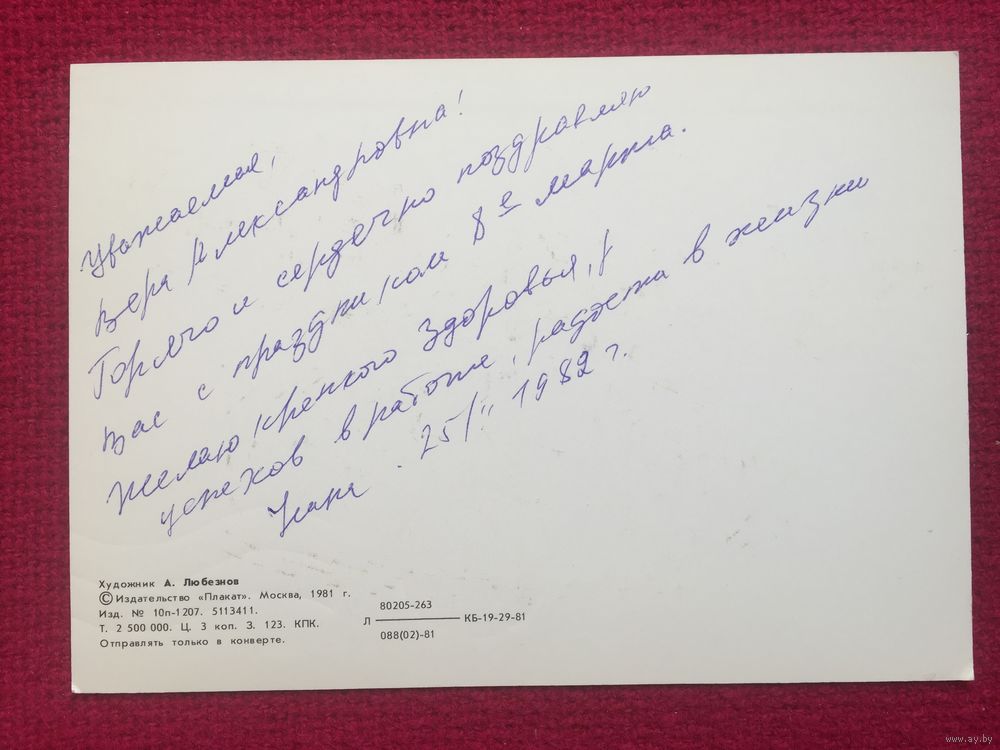 Уважаемая,
Вера Александровна!
Горячо и сердечно поздравляю
Вас с праздником 8е марта.
Желаю крепкого здоровья,
успехов в работе, радости в жизни
25/II 1982 г.
Художник А. Любезнов
© Издательство «Плакат». Москва, 1981 г.
Изд. № 10п-1207. 5113411.
Т. 2 500 000. Ц. 3 коп. З. 123. КПК.
Отправлять только в конверте.
80205-263
Л КБ-19-29-81
088(02)-81
www.ay.by